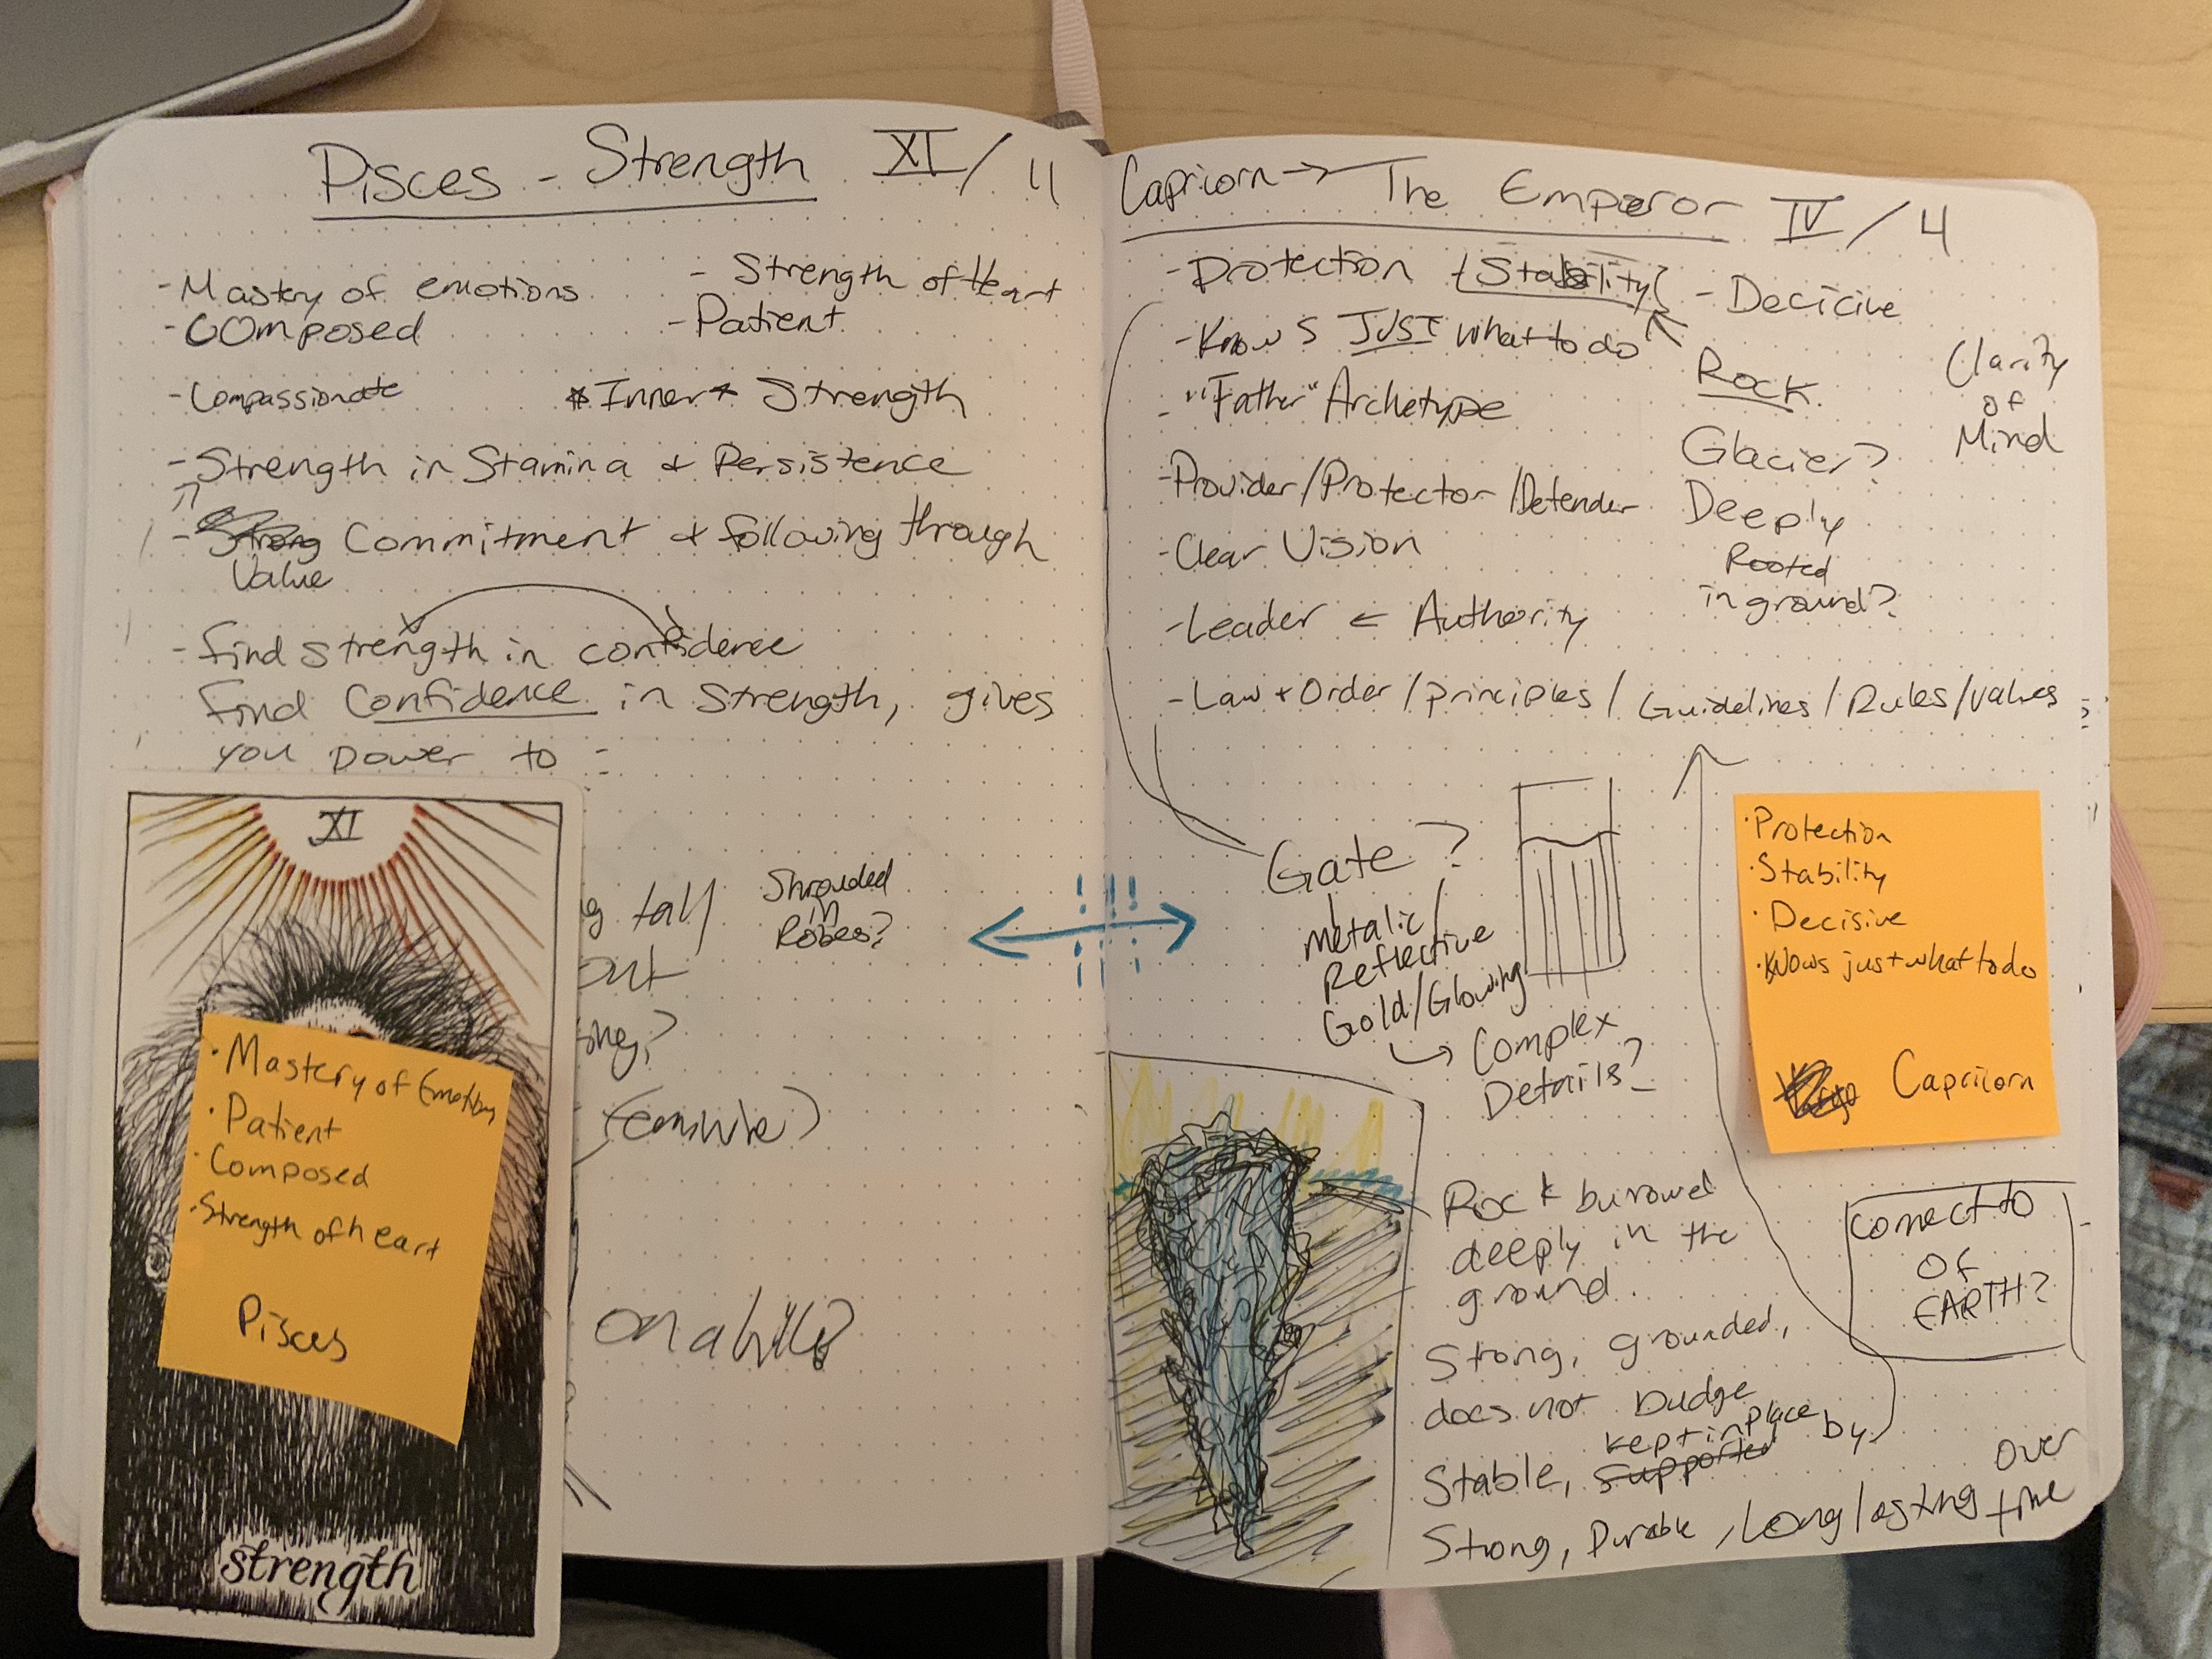 Pisces - Strength XI / 11
- Mastery of emotions
- Composed
- Strength of Heart
- Patient
- Compassionate
*Inner* Strength
- Strength in Stamina & Persistence
- Strong Commitment & following through
Value
- find strength in confidence
find Confidence in Strength, gives
you power to :
XI
tall
Shrouded
in
Robes?
out
on a hill?
· Mastery of Emotions
· Patient
· Composed
· Strength of heart
Pisces
strength
Capricorn → The Emperor IV / 4
- Protection {Stability}
- Decicive
- Knows JUST what to do
- "Father" Archetype
- Provider/Protector/Defender
- Clear Vision
- Leader ← Authority
- Law + Order / principles / Guidelines / Rules / values
ROCK
Glacier?
Deeply
Rooted
in ground?
Clarity
of
Mind
Gate?
Metalic/
Reflective
Gold/Glowing
Complex
Details?
· Protection
· Stability
· Decisive
· Knows just what to do
Capricorn
Rock burowed
deeply in the
ground.
Strong, grounded,
does not budge
Stable, supported kept in place by
Strong, Durable, Long lasting over
time
Connect to
OF
EARTH?